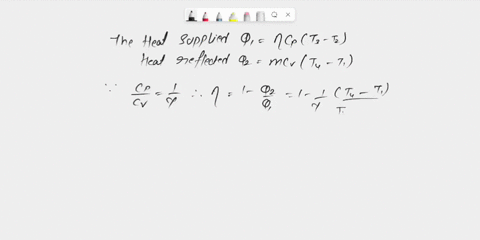 The Heat Supplied Φ₁ = ηCp (T₃ - T₂)
Heat reflected Φ₂ = mCv (T₄ - T₁)
∵ Cp/Cv = 1/γ ∴ η = 1 - Φ₂/Φ₁ = 1 - 1/γ (T₄ - T₁)/T₁